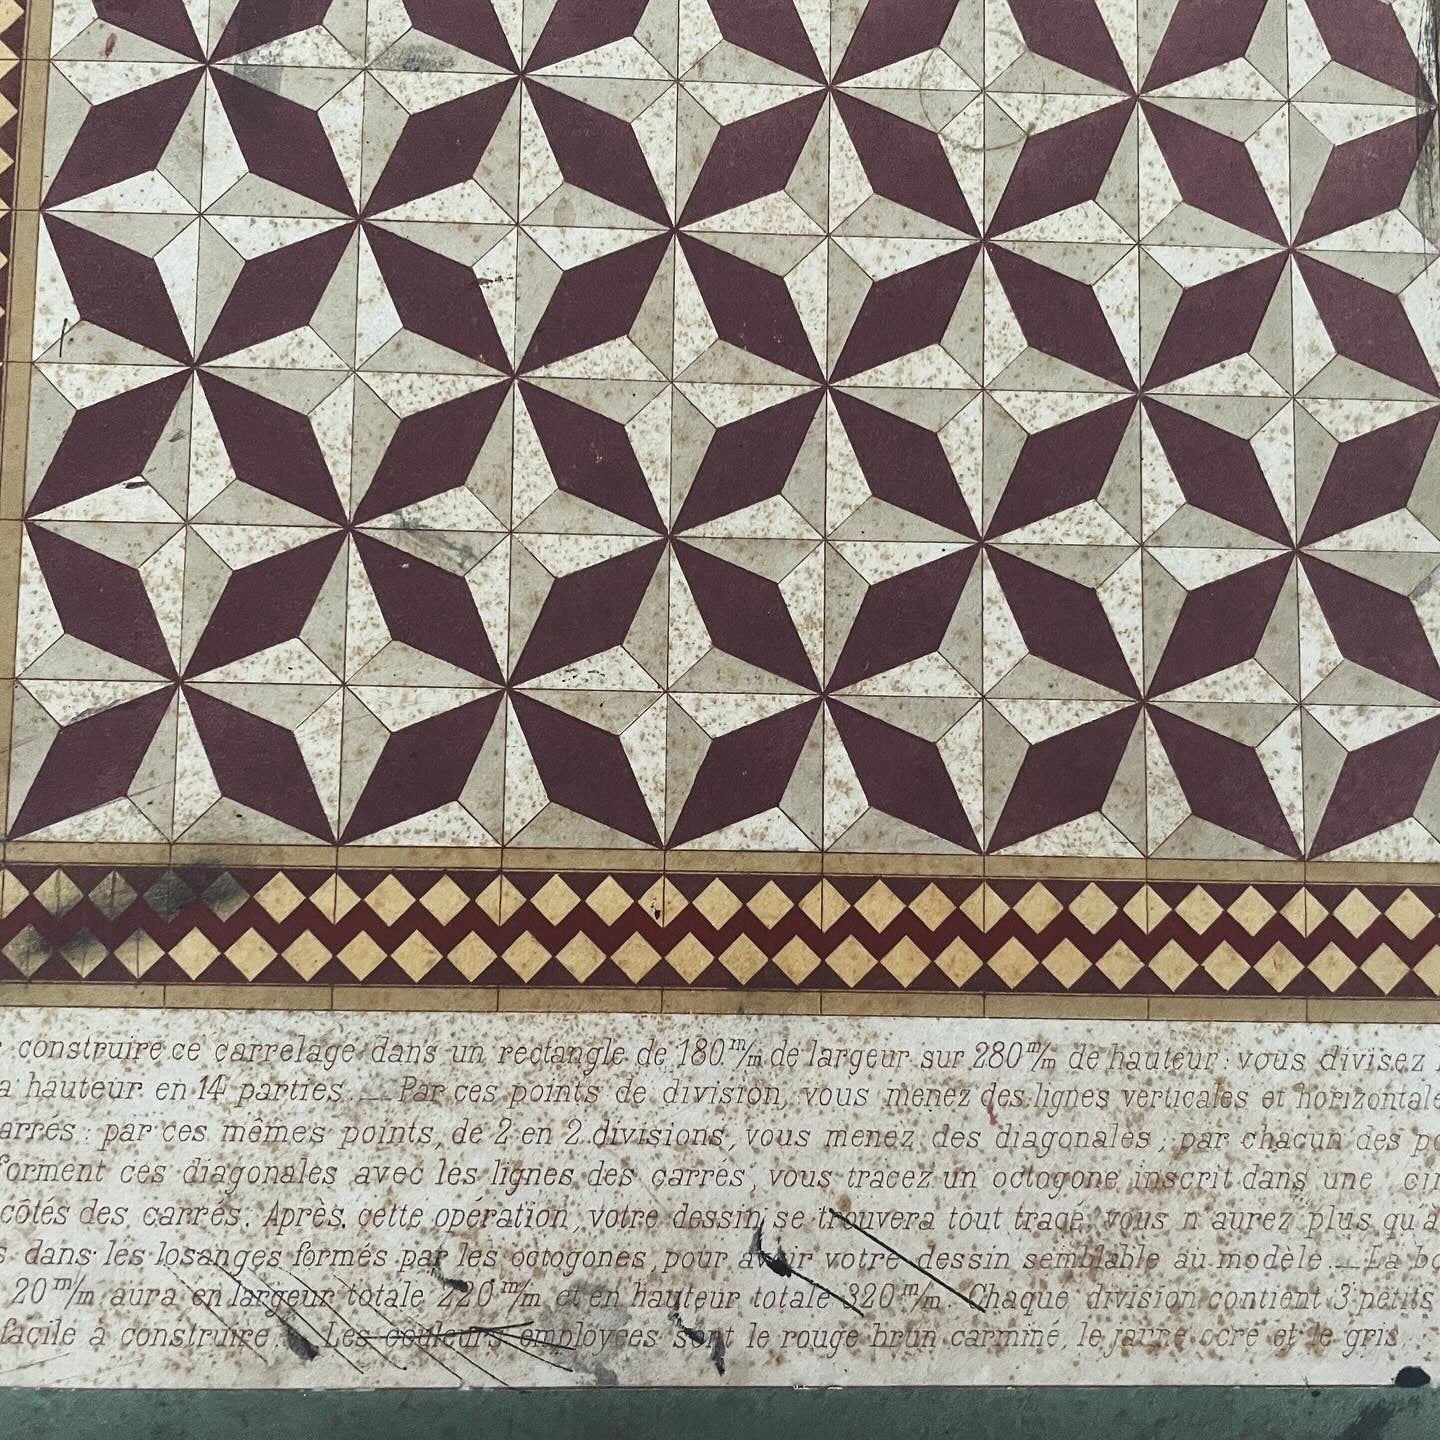 construire ce carrelage dans un rectangle de 180 m/m de largeur sur 280 m/m de hauteur : vous divisez
a hauteur en 14 parties. — Par ces points de division, vous menez des lignes verticales et horizontale
arrés : par ces mêmes points, de 2 en 2 divisions, vous menez des diagonales ; par chacun des po
forment ces diagonales avec les lignes des carrés, vous tracez un octogone inscrit dans une cir
côtés des carrés. Après cette opération, votre dessin se trouvera tout tracé, vous n'aurez plus qu'à
s dans les losanges formés par les octogones, pour avoir votre dessin semblable au modèle. — La bo
20 m/m aura en largeur totale 220 m/m et en hauteur totale 320 m/m. Chaque division contient 3 petits
facile à construire. — Les couleurs employées sont le rouge brun carminé, le jaune ocre et le gris.